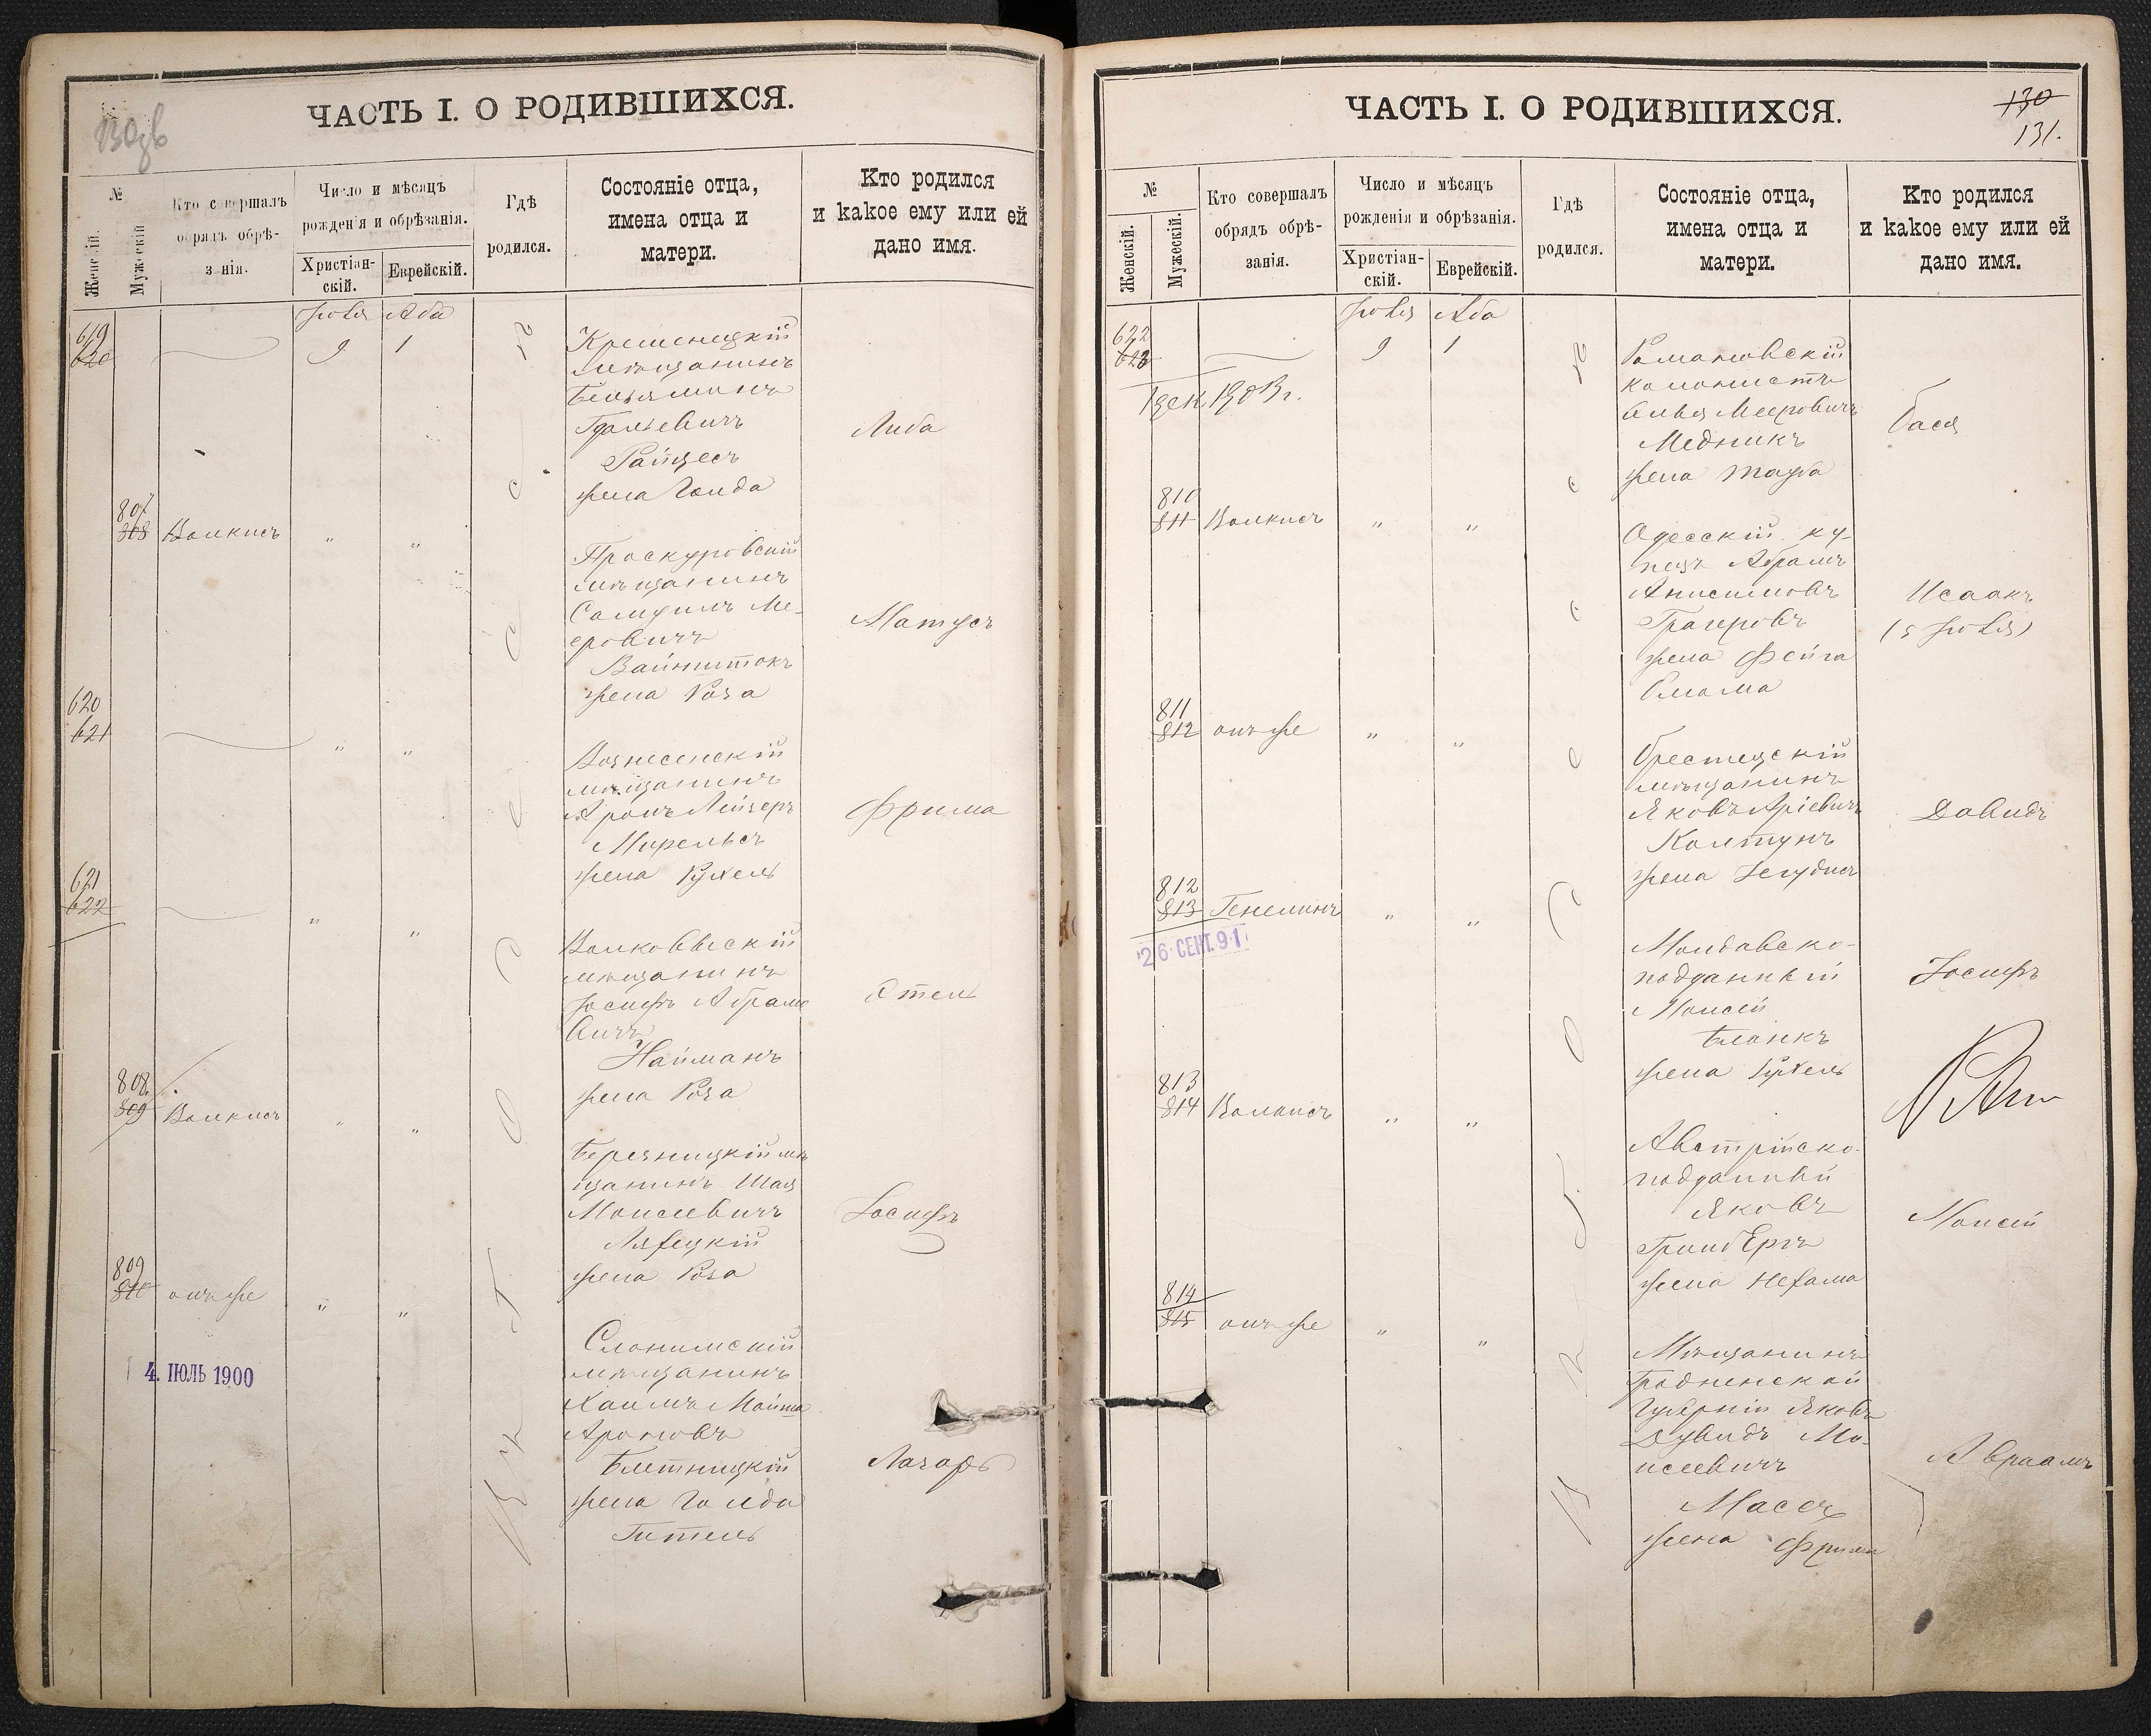 ЧАСТЬ I. О РОДИВШИХСЯ.
№
Женскій.
Мужескій
Кто совершалъ
обрядъ обрѣ-
занія.
Число и мѣсяцъ
рожденія и обрѣзанія.
Христіан-
скій.
Еврейскій.
Гдѣ
родился.
Состояніе отца,
имена отца и
матери.
Кто родился
и какое ему или ей
дано имя.
Іюля Аба
619
620
9 1
Кременецкій
мѣщанинъ
Беньяминъ
Гдальевичъ
Райцесъ
жена Голда
Либа
807
808
Волкисъ " "
Проскуровскій
мѣщанинъ
Самуилъ Ме-
еровичъ
Вайнштокъ
жена Роза
Матусъ
620
621
" "
Вознесенскій
мѣщанинъ
Аронъ Лейзеръ
Мирельсъ
жена Рухель
Фрима
621
622
" "
Волковыскій
мѣщанинъ
Іосифъ Абрамо
вичъ
Найманъ
жена Роза
Этель
808
809
Волкисъ " "
Березницкій мѣ
щанинъ Шая
Моисеевичъ
жена Роза
Іосифъ
809
810
онъ же " "
4. ІЮЛЬ 1900
Слонимскій
мѣщанинъ
Хаимъ
Ароновъ
жена Голда
Гитель
Лазарь
ЧАСТЬ I. О РОДИВШИХСЯ.
130
131.
№
Женскій.
Мужескій.
Кто совершалъ
обрядъ обрѣ-
занія.
Число и мѣсяцъ
рожденія и обрѣзанія.
Христіан-
скій.
Еврейскій.
Гдѣ
родился.
Состояніе отца,
имена отца и
матери.
Кто родился
и какое ему или ей
дано имя.
Іюля Аба
622
623
9 1
Романовскій
колонистъ
Мееровичъ
Медникъ
жена Тауба
Бася
810
811
Волкисъ " "
Одесскій ку-
пецъ Абрамъ
Анисимовъ
жена Фейга
Исаакъ
(5 Іюля)
811
812
онъ же " "
мѣщанинъ
Яковъ Аріевичъ
Колтунъ
жена
Давидъ
812
813
" "
26 СЕНТ. 91
Молдавско-
подданный
Моисей
Бланкъ
жена Рухель
Іосифъ
813
814
Волкисъ " "
Австрійско-
подданный
Яковъ
жена Нехама
Моисей
814
815
онъ же " "
Мѣщанинъ
Гродненской
Губерніи Яковъ
Дувидъ Мо-
исеевичъ
жена Фрима
Авраамъ